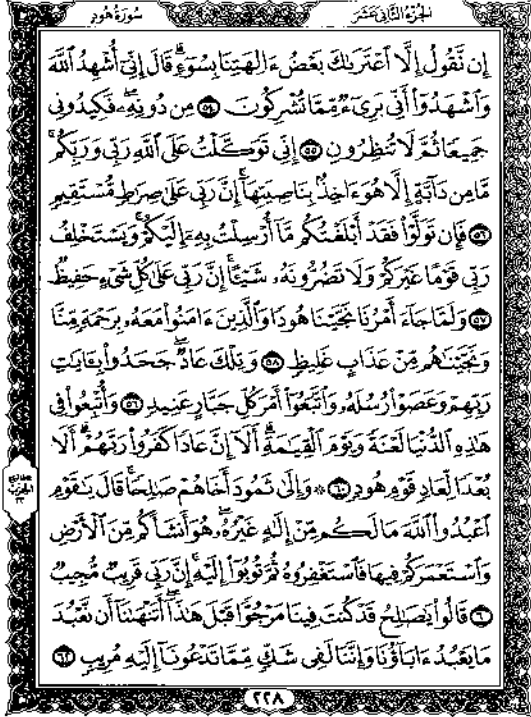 سُورَةُ هُودٍ الجزء الثاني عشر
إِن نَّقُولُ إِلَّا ٱعْتَرَىٰكَ بَعْضُ ءَالِهَتِنَا بِسُوٓءٍ ۗ قَالَ إِنِّىٓ أُشْهِدُ ٱللَّهَ
وَٱشْهَدُوٓا۟ أَنِّى بَرِىٓءٌ مِّمَّا تُشْرِكُونَ ٥٤ مِن دُونِهِۦ ۖ فَكِيدُونِى
جَمِيعًا ثُمَّ لَا تُنظِرُونِ ٥٥ إِنِّى تَوَكَّلْتُ عَلَى ٱللَّهِ رَبِّى وَرَبِّكُم ۚ
مَّا مِن دَآبَّةٍ إِلَّا هُوَ ءَاخِذٌۢ بِنَاصِيَتِهَآ ۚ إِنَّ رَبِّى عَلَىٰ صِرَٰطٍ مُّسْتَقِيمٍ
٥٦ فَإِن تَوَلَّوْا۟ فَقَدْ أَبْلَغْتُكُم مَّآ أُرْسِلْتُ بِهِۦٓ إِلَيْكُمْ ۚ وَيَسْتَخْلِفُ
رَبِّى قَوْمًا غَيْرَكُمْ وَلَا تَضُرُّونَهُۥ شَيْـًٔا ۚ إِنَّ رَبِّى عَلَىٰ كُلِّ شَىْءٍ حَفِيظٌ
٥٧ وَلَمَّا جَآءَ أَمْرُنَا نَجَّيْنَا هُودًا وَٱلَّذِينَ ءَامَنُوا۟ مَعَهُۥ بِرَحْمَةٍ مِّنَّا
وَنَجَّيْنَٰهُم مِّنْ عَذَابٍ غَلِيظٍ ٥٨ وَتِلْكَ عَادٌ ۖ جَحَدُوا۟ بِـَٔايَٰتِ
رَبِّهِمْ وَعَصَوْا۟ رُسُلَهُۥ وَٱتَّبَعُوٓا۟ أَمْرَ كُلِّ جَبَّارٍ عَنِيدٍ ٥٩ وَأُتْبِعُوا۟ فِى
هَٰذِهِ ٱلدُّنْيَا لَعْنَةً وَيَوْمَ ٱلْقِيَٰمَةِ ۗ أَلَآ إِنَّ عَادًا كَفَرُوا۟ رَبَّهُمْ ۗ أَلَا
بُعْدًا لِّعَادٍ قَوْمِ هُودٍ ٦٠ ۞ وَإِلَىٰ ثَمُودَ أَخَاهُمْ صَٰلِحًا ۚ قَالَ يَٰقَوْمِ
ٱعْبُدُوا۟ ٱللَّهَ مَا لَكُم مِّنْ إِلَٰهٍ غَيْرُهُۥ ۖ هُوَ أَنشَأَكُم مِّنَ ٱلْأَرْضِ
وَٱسْتَعْمَرَكُمْ فِيهَا فَٱسْتَغْفِرُوهُ ثُمَّ تُوبُوٓا۟ إِلَيْهِ ۚ إِنَّ رَبِّى قَرِيبٌ مُّجِيبٌ
٦١ قَالُوا۟ يَٰصَٰلِحُ قَدْ كُنتَ فِينَا مَرْجُوًّا قَبْلَ هَٰذَآ ۖ أَتَنْهَىٰنَآ أَن نَّعْبُدَ
مَا يَعْبُدُ ءَابَآؤُنَا وَإِنَّنَا لَفِى شَكٍّ مِّمَّا تَدْعُونَآ إِلَيْهِ مُرِيبٍ ٦٢
٢٢٨